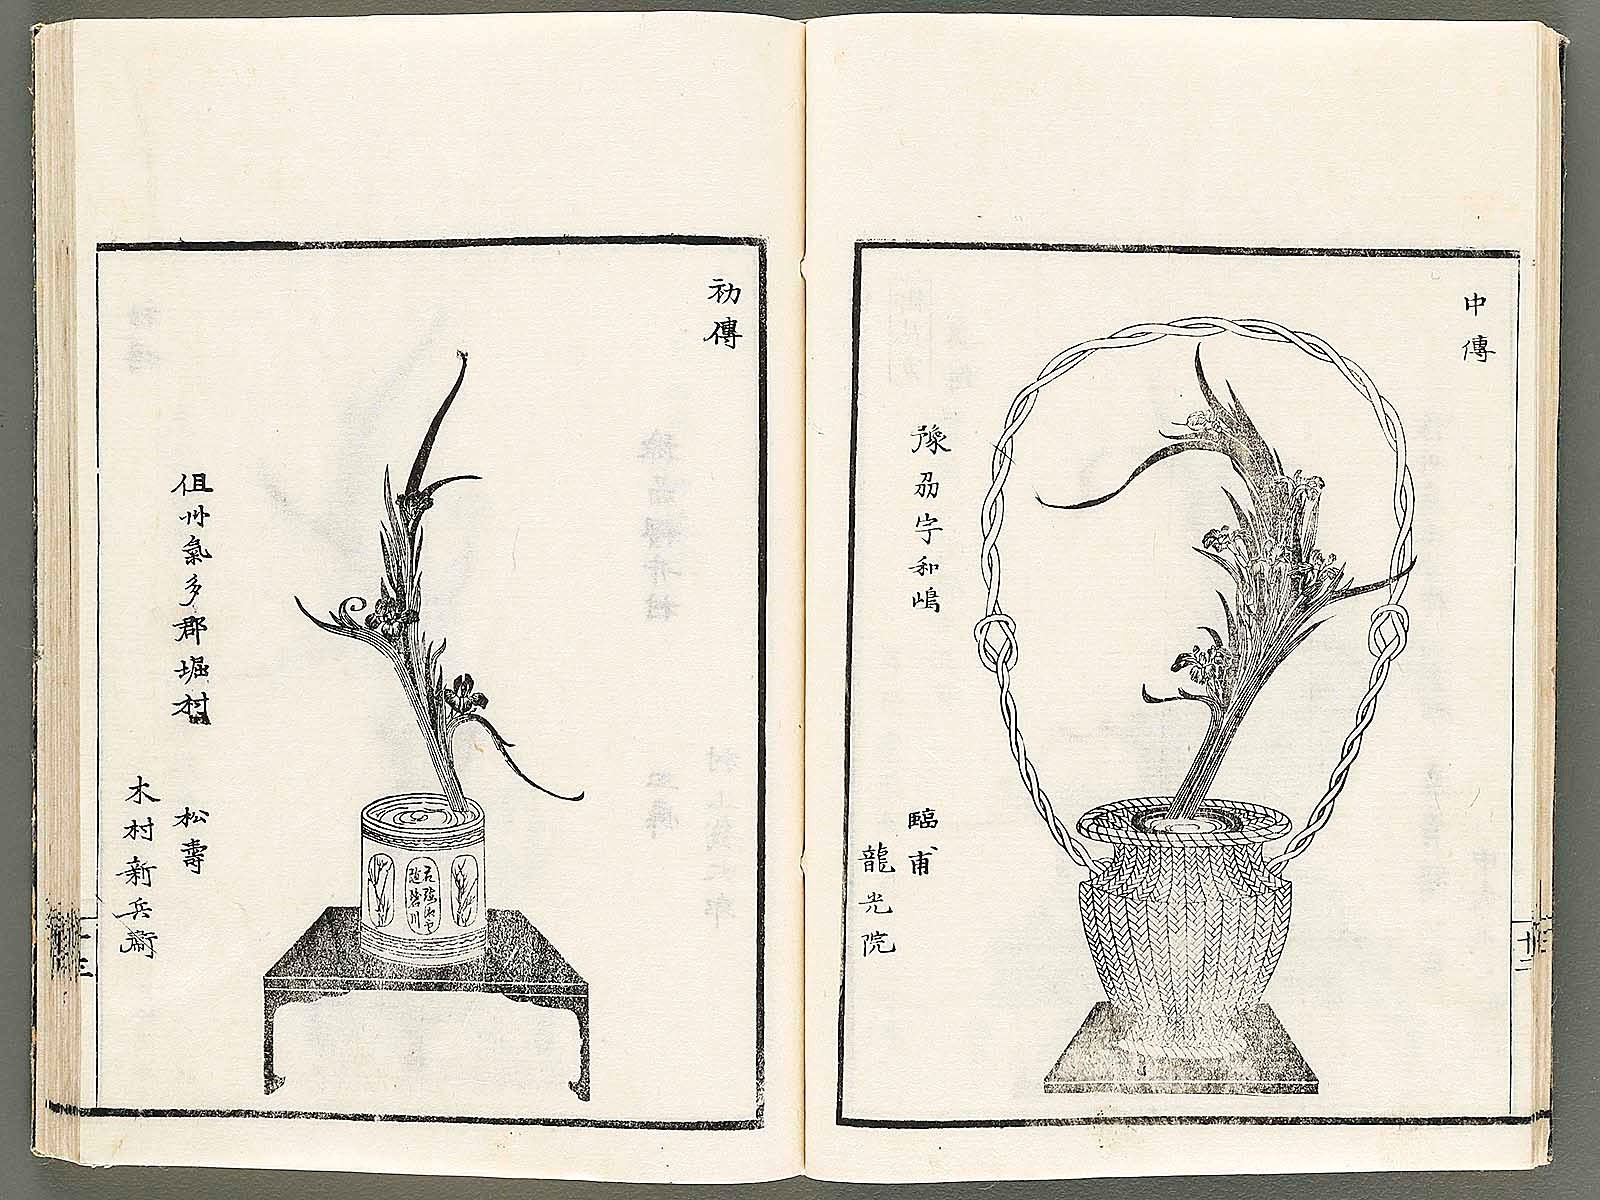 中傳
豫刕宇和嶋
臨甫
龍光院
十二
初傳
但州氣多郡堀村
松壽
木村新兵衛
十三